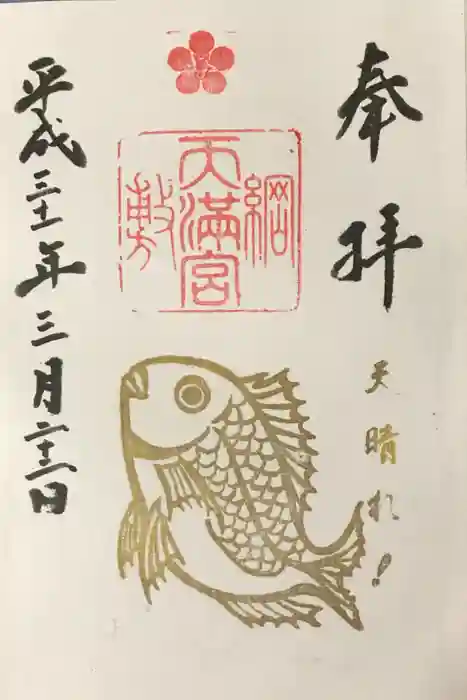 奉拝
天晴れ！
綱
天満宮
敷
平成三十一年三月二十二日